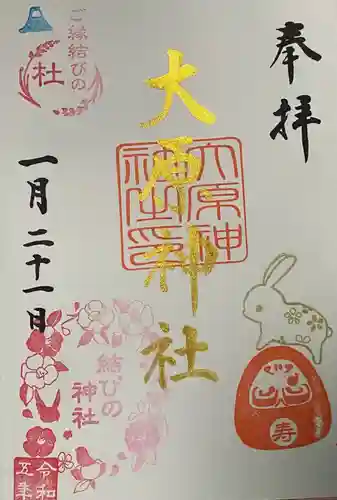 奉拝
大原神社
大原神社印
ご縁結びの
杜
一月二十一日
結びの
神社
令和
五年
寿